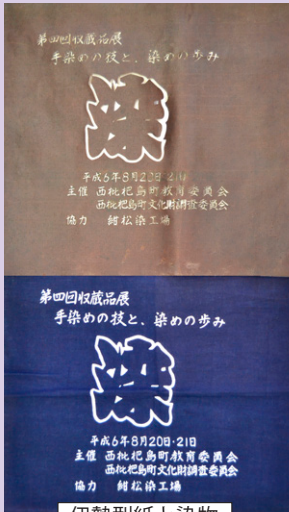 第四回収蔵品展
手染めの技と、染めの歩み
染
平成6年8月20日・21日
主催 西枇杷島町教育委員会
西枇杷島町文化財調査委員会
協力 紺松染工場
第四回収蔵品展
手染めの技と、染めの歩み
染
平成6年8月20日・21日
主催 西枇杷島町教育委員会
西枇杷島町文化財調査委員会
協力 紺松染工場
伊勢型紙と染物